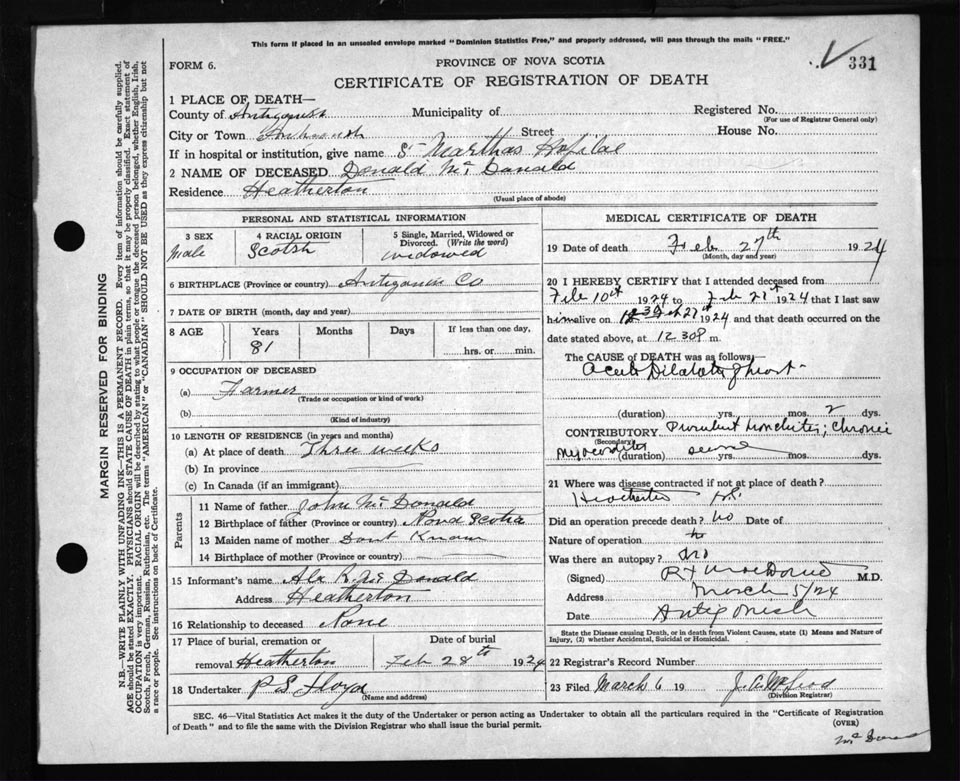 This form if placed in an unsealed envelope marked "Dominion Statistics Free," and properly addressed, will pass through the mails "FREE."
331
FORM 6.
PROVINCE OF NOVA SCOTIA
CERTIFICATE OF REGISTRATION OF DEATH
MARGIN RESERVED FOR BINDING
N.B.—WRITE PLAINLY WITH UNFADING INK—THIS IS A PERMANENT RECORD. Every item of information should be carefully supplied.
AGE should be stated EXACTLY. PHYSICIANS should STATE CAUSE OF DEATH in plain terms, so that it may be properly classified. Exact statement of
OCCUPATION is very important. RACIAL ORIGIN will be described by stating to what people or tongue the deceased person belonged, whether English, Irish,
Scotch, French, German, Russian, Ruthenian, etc. The terms "AMERICAN" or "CANADIAN" SHOULD NOT BE USED as they express citizenship but not
a race or people. See instructions on back of Certificate.
1 PLACE OF DEATH—
County of Antigonish Municipality of Registered No.
(For use of Registrar General only)
City or Town Antigonish Street House No.
If in hospital or institution, give name St Marthas Hospital
2 NAME OF DECEASED Donald Mc Donald
Residence Heatherton
(Usual place of abode)
PERSONAL AND STATISTICAL INFORMATION
3 SEX
Male
4 RACIAL ORIGIN
Scotsh
5 Single, Married, Widowed or
Divorced. (Write the word)
widowed
6 BIRTHPLACE (Province or country) Antigonish Co
7 DATE OF BIRTH (month, day and year)
8 AGE Years Months Days If less than one day,
81 hrs. or min.
9 OCCUPATION OF DECEASED
(a) Farmer
(Trade or occupation or kind of work)
(b)
(Kind of industry)
10 LENGTH OF RESIDENCE (in years and months)
(a) At place of death Three weeks
(b) In province
(c) In Canada (if an immigrant)
Parents
11 Name of father John Mc Donald
12 Birthplace of father (Province or country) Nova Scotia
13 Maiden name of mother Dont Know
14 Birthplace of mother (Province or country)
15 Informant's name Alx R. Mc Donald
Address Heatherton
16 Relationship to deceased None
17 Place of burial, cremation or Date of burial
removal Heatherton Feb 28th 1924
18 Undertaker P S Floyd
(Name and address)
MEDICAL CERTIFICATE OF DEATH
19 Date of death Feb 27th 1924
(Month, day and year)
20 I HEREBY CERTIFY that I attended deceased from
Feb 10th 1924 to Feb 27th 1924 that I last saw
him alive on Feb 27th 1924 and that death occurred on
date stated above, at 12 30 P m.
The CAUSE OF DEATH was as follows
Acute Dilatation of heart
(duration) yrs. mos. 2 dys.
CONTRIBUTORY Purulent bronchitis; Chronic
(Secondary)
Myocarditis (duration) yrs. mos. dys.
21 Where was disease contracted if not at place of death?
Heatherton
Did an operation precede death? No Date of
Nature of operation
Was there an autopsy? No
(Signed) M.D.
Address March 5/24
Date Antigonish
State the Disease causing Death, or in death from Violent Causes, state (1) Means and Nature of
Injury, (2) whether Accidental, Suicidal or Homicidal.
22 Registrar's Record Number
23 Filed March 6 19 J. A. McLeod
(Division Registrar)
SEC. 46—Vital Statistics Act makes it the duty of the Undertaker or person acting as Undertaker to obtain all the particulars required in the "Certificate of Registration
of Death" and to file the same with the Division Registrar who shall issue the burial permit.
(OVER)